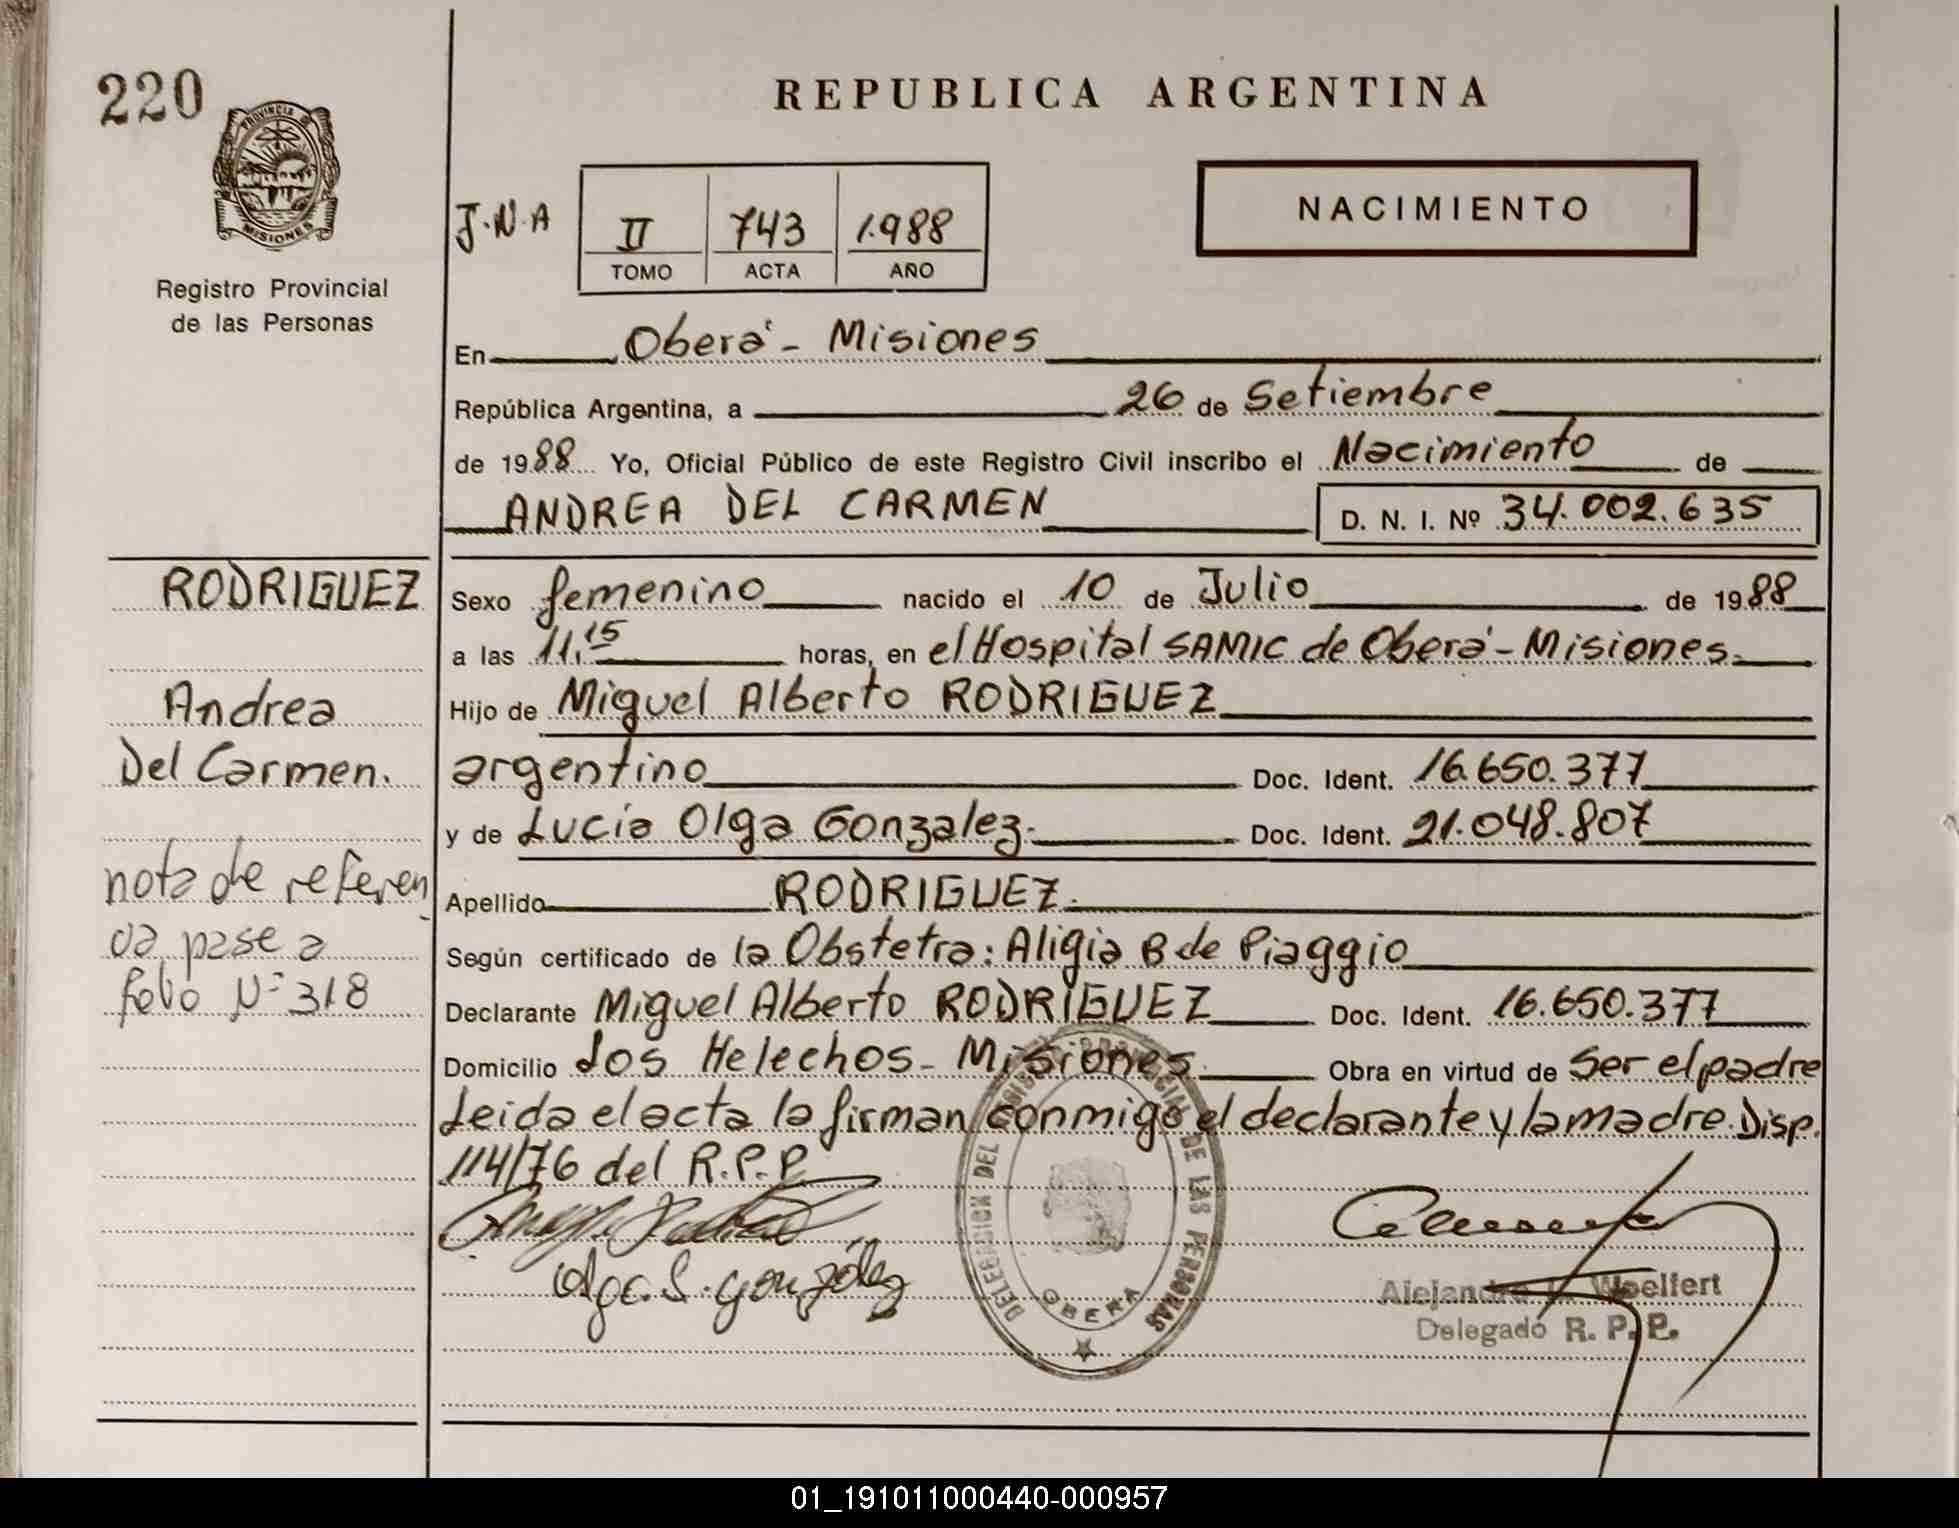 220
PROVINCIA D
MISIONES
Registro Provincial
de las Personas
REPUBLICA ARGENTINA
NACIMIENTO
J.N.A
II 743 1.988
TOMO ACTA AÑO
En Oberá - Misiones
República Argentina, a 26 de Setiembre
de 1988 Yo, Oficial Público de este Registro Civil inscribo el Nacimiento de
ANDREA DEL CARMEN D. N. I. Nº 34.002.635
RODRIGUEZ
Andrea
Del Carmen.
nota de referen
cia pase a
folio Nº 318
Sexo femenino nacido el 10 de Julio de 1988
a las 11,15 horas, en el Hospital SAMIC de Oberá - Misiones.
Hijo de Miguel Alberto RODRIGUEZ
argentino Doc. Ident. 16.650.377
y de Lucía Olga Gonzalez. Doc. Ident. 21.048.807
Apellido RODRIGUEZ.
Según certificado de la Obstetra: Aligia B de Piaggio
Declarante Miguel Alberto RODRIGUEZ Doc. Ident. 16.650.377
Domicilio Los Helechos - Misiones. Obra en virtud de Ser el padre
Leida el acta la firman conmigo el declarante y la madre. Disp.
114/76 del R.P.P.
Olga L. González
DELEGACION DEL REGISTRO PROVINCIAL DE LAS PERSONAS
OBERA
Woelfert
Delegado R. P. P.
01_191011000440-000957